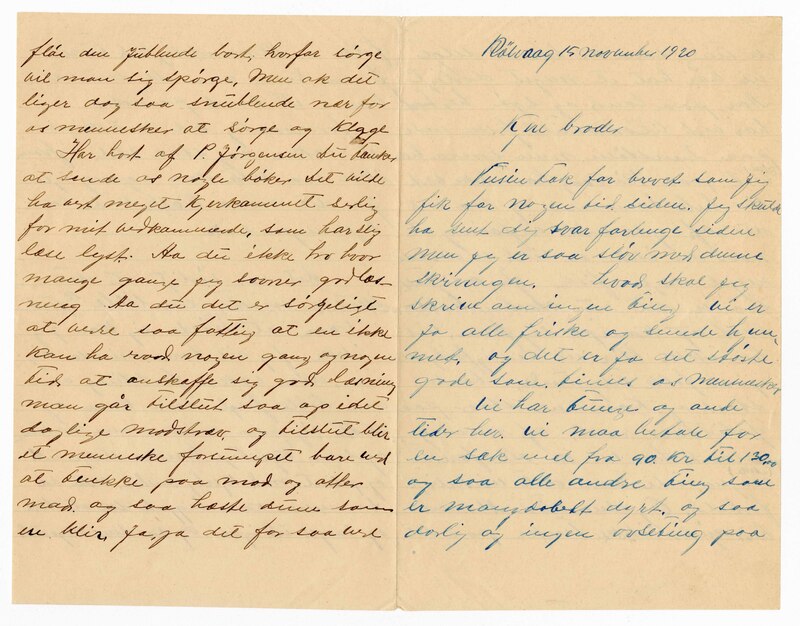 15 november 1920
Kjere broder
Tusen tak for brevet som jeg
fik for nogen tid siden. Jeg skulde
ha sent dig svar forlenge siden
men jeg er saa sløv med denne
skrivingen. hvad skal jeg
skrive om ingen ting vi er
ja alle friske og sunde
med. og det er ja det største
gode som. finnes os mennesker
Vi har tunge og onde
tider her. Vi maa betale for
en sæk mel fra 90. Kr til 120,00
og saa alle andre ting som
er mangdobelt dyrt. og saa
dorlig og ingen avseting paa
den jublende bort, hvorfor sørge
vil man sig spørge. Men ak det
liger dog saa snublende nær for
os mennesker at sørge og klage
Har hort af P. Jørgensen du tenker
at sende os nogle bøker det vilde
ha vert meget kjerkomment serlig
for mit vedkammende, som har slig
læse lyst. Aa du ikke tro hvor
mange gange jeg sovner god læs-
ning Aa du det er sørgeligt
at vere saa fattig at en ikke
kan ha raad nogen gang og nogen
tid. at anskaffe sig god læsning
man går tilslut saa op i det
daglige modstræv og tilslut blir
et menneske forsumpet bare ved
at tenkke paa mad og atter
mad. og saa haste dum som
en blir. Ja, ja det for saa ved